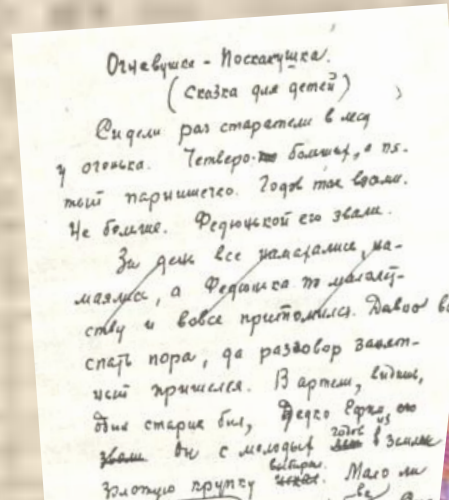 Огневушка - Поскакушка.
(Сказка для детей)
Сидели раз старатели в лесу
у огонька. Четверо больших, а пя-
тый парнишечко. Годов так восьми.
Не больше. Федюнькой его звали.
За день все намаялись, а Федюшка по малолет-
ству и вовсе притомился. Давно
спать пора, да разговор занят-
ный пришелся. В артели, видишь,
один старик был, Дедко Ефим,
звали Он с молодых годов из земли
золотую крупку выбирал. Мало ли